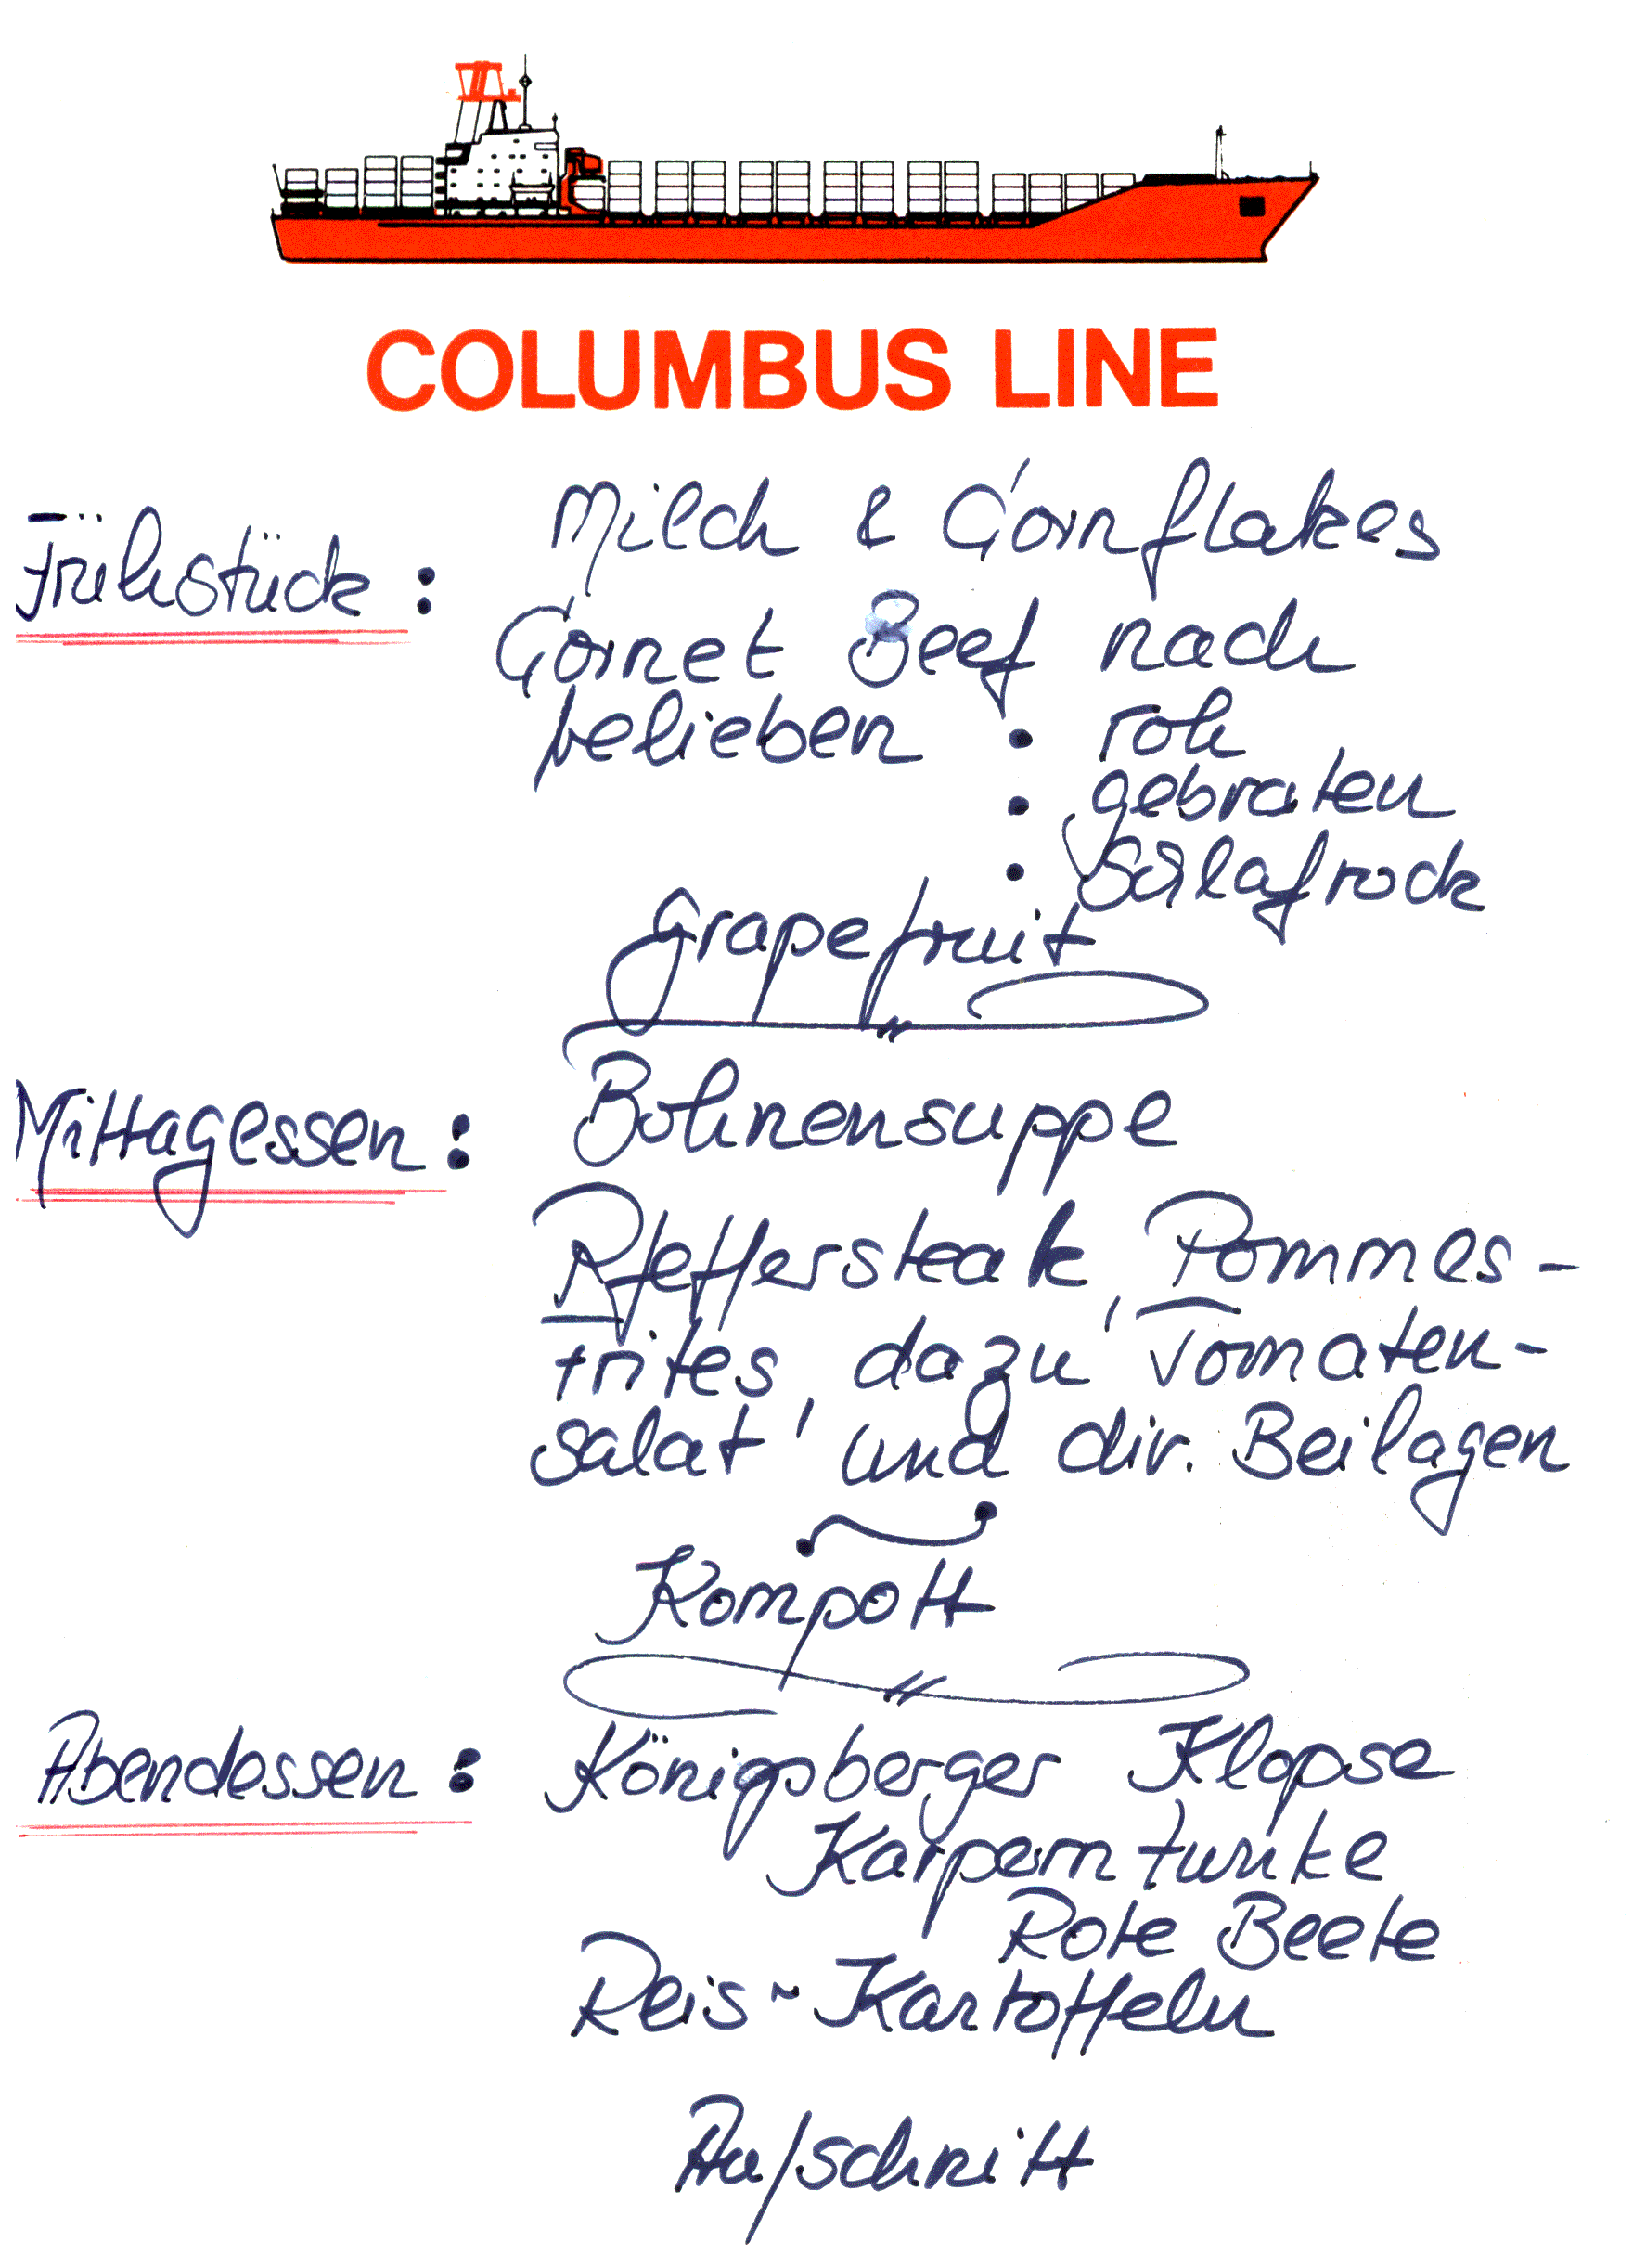 COLUMBUS LINE
Frühstück : Milch & Cornflakes
Cornet Beef nach
belieben • roh
• gebraten
• Schlafrock
Grapefruit
Mittagessen : Bohnensuppe
Pfeffersteak, Pommes-
frites, dazu Tomaten-
salat und div. Beilagen
Kompott
Abendessen : Königsberger Klopse
Karperntunke
Rote Beete
Reis ~ Kartoffeln
Aufschnitt